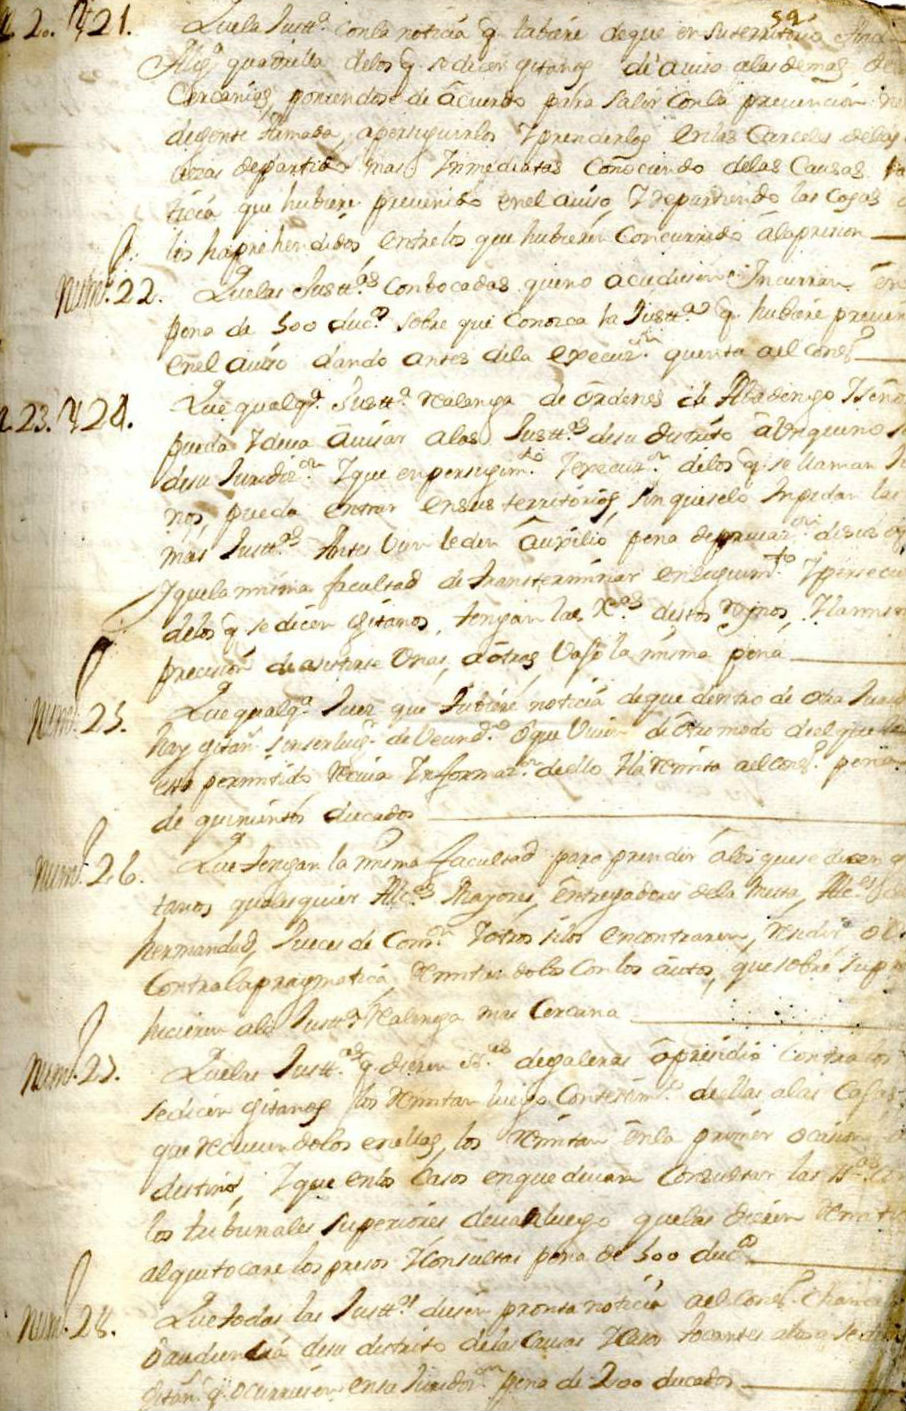 59
20. y 21. Que la Justt.ª con la noticia q. tubiere de que en su territorio Anda
Alg.ª quadrilla de los q. se dicen gitanos dé aviso a las demas de
Cercanias, poniendose de acuerdo para salir con la prevencion
de gente Armada, a perseguirlos y prenderlos en las Carceles de las
de partido mas Inmediatas Conociendo de las Causas la
ticia que hubiere prevenido en el aviso y repartiendo las Cosas
los haprehendidos, entre los que hubieren Concurrido à la prision
Num.º 22. Que las Justt.as Conbocadas, que no acudieren Incurran en
pena de 500 duc.s sobre que Conozca la Justt.ª q. hubiere preven
en el aviso dando antes de la execuz.on quenta a el Cons.º
23. y 24. Que qualq.r Justt.ª realenga de ôrdenes de Abadengo y Señor
pueda y deva âvisar a las Justt.as de su distrito
de su Juridiz.on y que en persegim.to y execuz.on de los q. se llaman
nos, pueda entrar en sus territorios, sin que se lo Inpidan las
mas Justt.as Antes bien le den Auxilio pena de privaz.on de sus
y que la misma facultad de transterminar en seguim.to y persecu
de los q. se dicen Gitanos, tengan las de estos Reynos,
precision de asistirse Unas, a ôtras, vajo la misma pena
Num.º 25. Que qualq.ª Juez que tubiere noticia de que dentro de otra
hay gitan.s sin ser lug.r de Vecind.d ô que Viven de ôtro modo de el que les
esta permitido, reciva Informaz.on de ello y la remita a el Cons.º pena
de quinientos ducados
Num.º 26. Que tengan la misma facultad para prender â los que se dicen gi
tanos qualesquier Alc.es Mayores, Entregadores de la Mesta, Alc.es de
hermandad, Jueces de Com.on y otros si los encontraren,
Contra la pragmatica remitiendolos con los autos, que sobre su
hicieren a la Justt.ª Realenga mas Cercana
Num.º 27. Que las Justt.as q. dieren de galeras ô presidio contra los
se dicen Gitanos los remitan luego Con testim.º de ellas a las Casas
que reciviendolos en ellas, los remitan en la primer ocasion
destino, y que en los Casos en que devan Consultar las
los tribunales superiores devan luego que las dieren remitir
al que tocare los presos y Consultas pena de 500 duc.s
Num.º 28. Que todas las Justt.as diesen pronta noticia a el Cons.º Chanci
ô audiencia de su distrito de las Causas y Casos tocantes a los q. se dicen
Gitan.s q. ocurriesen en su Juridiz.on pena de 200 ducados